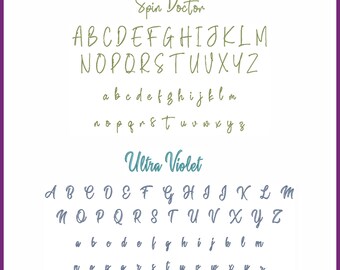 Spin Doctor
ABCDEFGHIJKLM
NOPQRSTUVWXYZ
a b c d e f g h i j k l m
n o p q r s t u v w x y z
Ultra Violet
A B C D E F G H I J K L M
N O P Q R S T U V W X Y Z
a b c d e f g h i j k l m
n o p q r s t u v w x y z